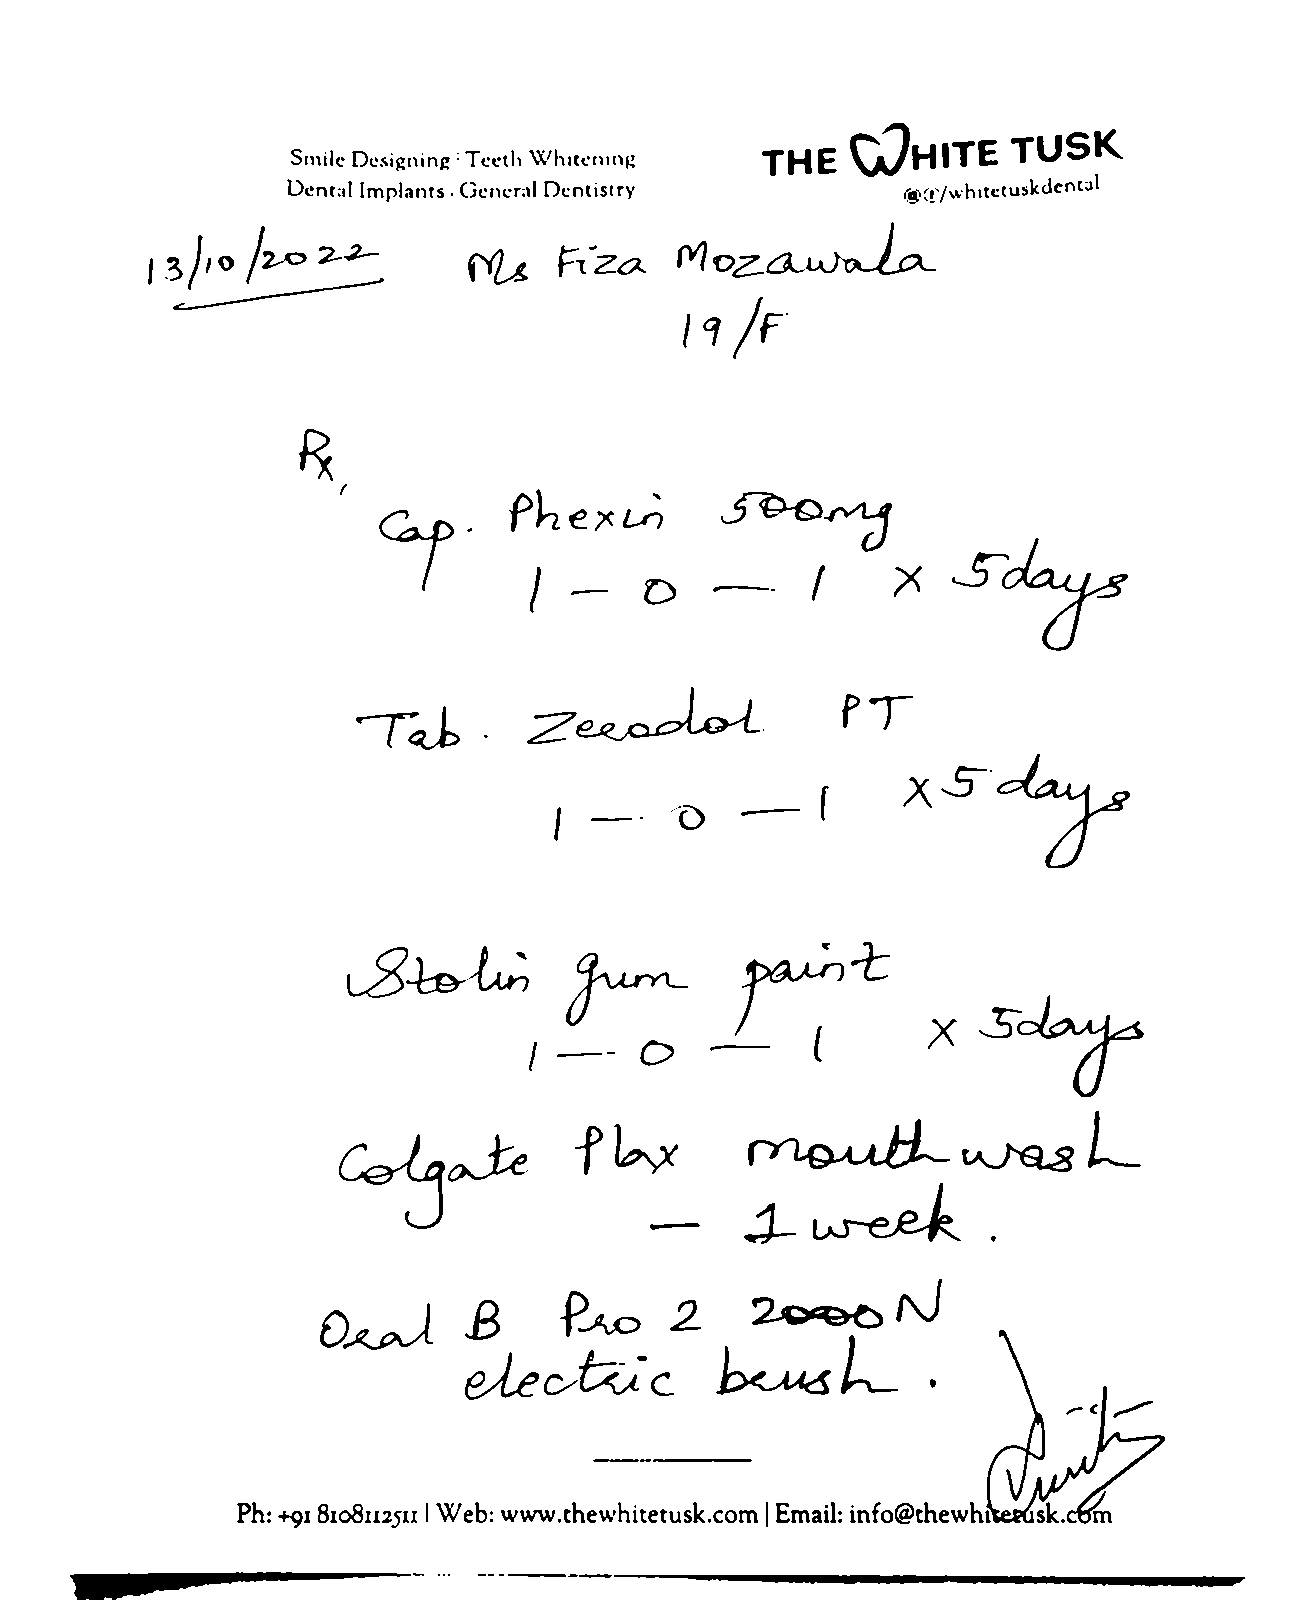 Smile Designing · Teeth Whitening
Dental Implants · General Dentistry
THE WHITE TUSK
/whitetuskdental
13/10/2022 Ms Fiza Mozawala
19/F
Rx,
Cap. Phexin 500mg
1 - 0 - 1 x 5 days
Tab. Zerodol PT
1 - 0 - 1 x 5 days
Stolin gum paint
1 - 0 - 1 x 5 days
Colgate Plax mouthwash
- 1 week.
Oral B Pro 2 2000 N
electric brush.
Ph: +91 8108112511 | Web: www.thewhitetusk.com | Email: info@thewhitetusk.com